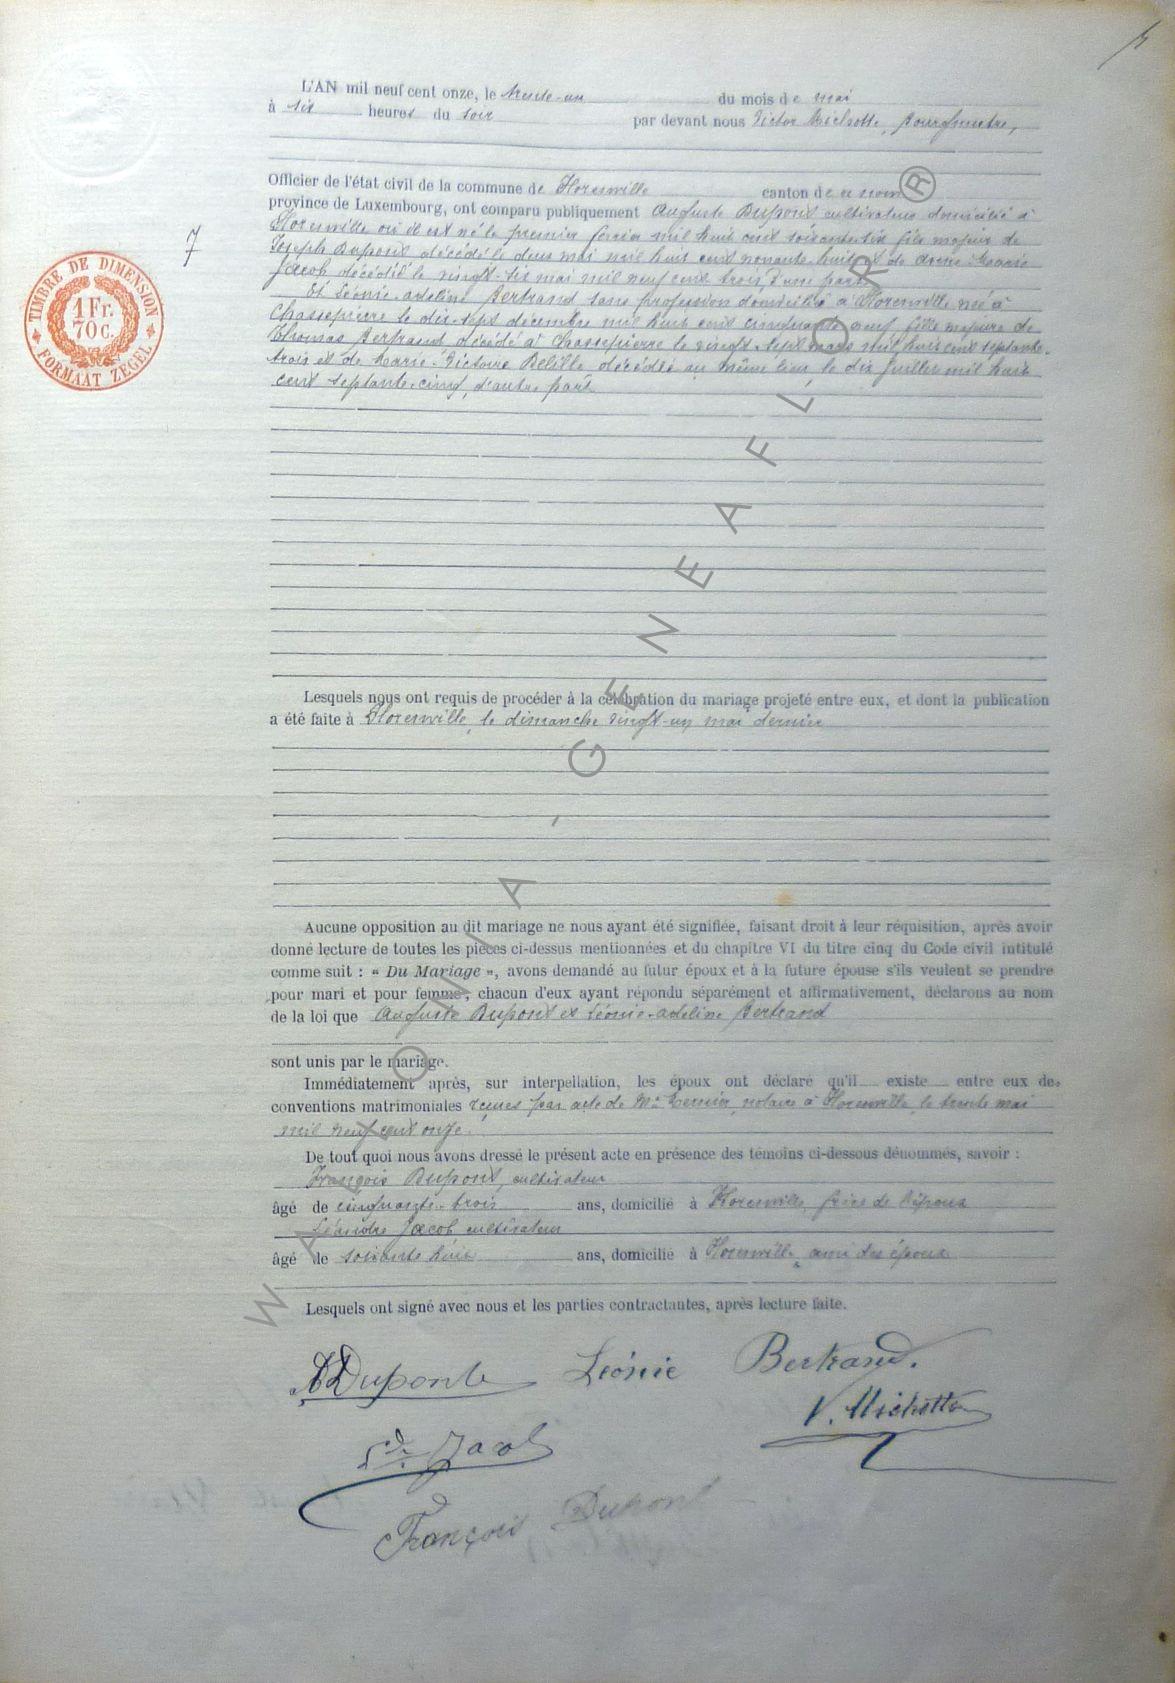 L'AN mil neuf cent onze, le trente-un du mois de mai
à six heures du soir par devant nous Victor Michotte, bourgmestre,
Officier de l'état civil de la commune de Florenville canton de ce nom
province de Luxembourg, ont comparu publiquement Auguste Dupont cultivateur domicilié à
Florenville où il est né le premier février mil huit cent soixante six fils majeur de
Joseph Dupont décédé le deux mai mil huit cent nonante-huit et de Marie
Jacob décédée le vingt-six mai mil neuf cent trois, d'une part
Et Léonie-Adeline Bertrand sans profession domiciliée à Florenville née à
Chassepierre le dix-sept décembre mil huit cent cinquante neuf fille majeure de
Thomas Bertrand décédé à Chassepierre le vingt-sept mars mil huit cent septante-
trois et de Marie-Victoire Delille décédée au même lieu, le dix juillet mil huit
cent septante-cinq, d'autre part
7
TIMBRE DE DIMENSION
1 Fr.
70 c.
FORMAAT ZEGEL
Lesquels nous ont requis de procéder à la célébration du mariage projeté entre eux, et dont la publication
a été faite à Florenville, le dimanche vingt-un mai dernier
Aucune opposition au dit mariage ne nous ayant été signifiée, faisant droit à leur réquisition, après avoir
donné lecture de toutes les pièces ci-dessus mentionnées et du chapitre VI du titre cinq du Code civil intitulé
comme suit : « Du Mariage », avons demandé au futur époux et à la future épouse s'ils veulent se prendre
pour mari et pour femme; chacun d'eux ayant répondu séparément et affirmativement, déclarons au nom
de la loi que Auguste Dupont et Léonie-Adeline Bertrand
sont unis par le mariage.
Immédiatement après, sur interpellation, les époux ont déclaré qu'il existe entre eux des
conventions matrimoniales reçues par acte de Me notaire à Florenville, le trente mai
mil neuf cent onze.
De tout quoi nous avons dressé le présent acte en présence des témoins ci-dessous dénommés, savoir :
François Dupont, cultivateur
âgé de cinquante-trois ans, domicilié à Florenville, frère de l'époux
Léandre Jacob cultivateur
âgé de soixante huit ans, domicilié à Florenville, ami des époux
Lesquels ont signé avec nous et les parties contractantes, après lecture faite.
A Dupont Léonie Bertrand.
V. Michotte
Jacob
François Dupont
WALLONIA - GENEAFLOR ®